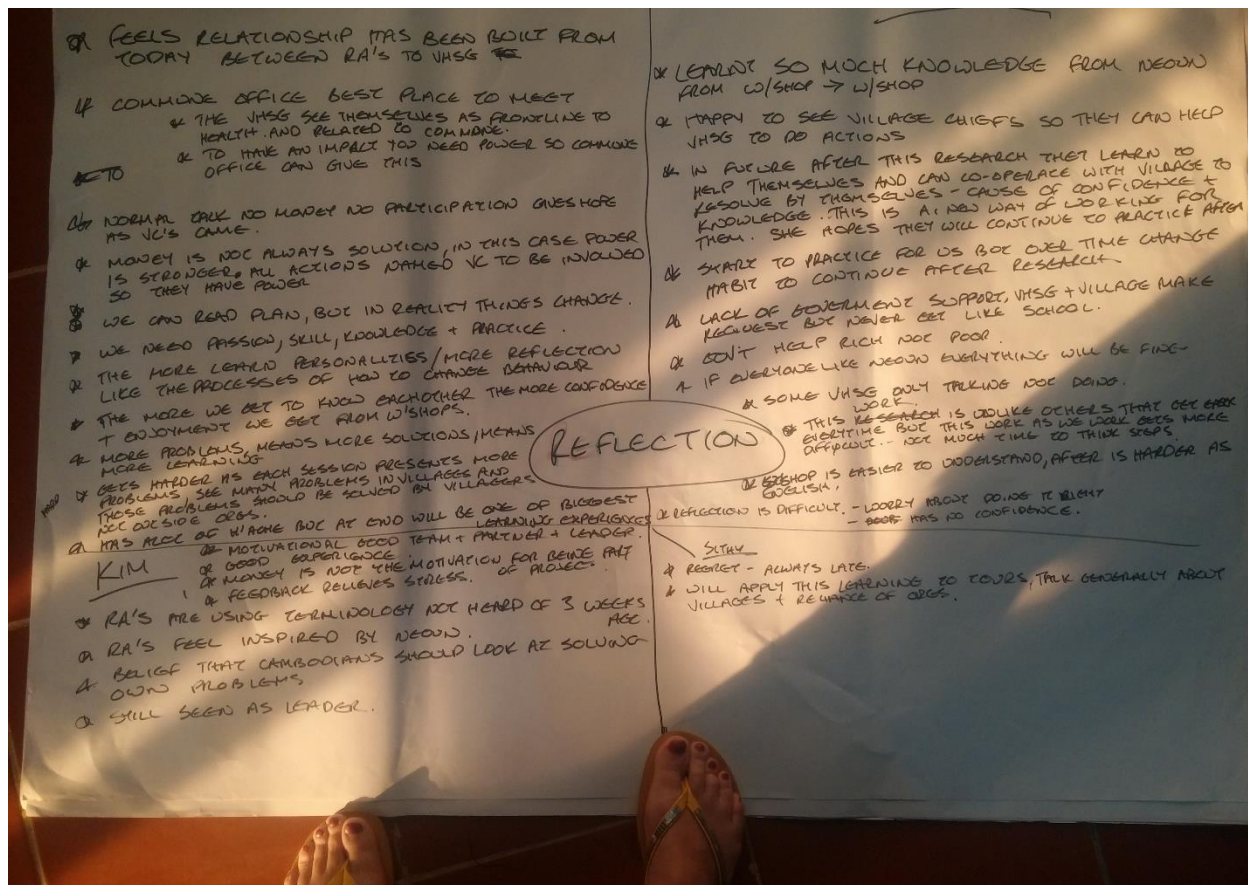 * FEELS RELATIONSHIP HAS BEEN BUILT FROM
TODAY BETWEEN RA'S TO VHSG
* COMMUNE OFFICE BEST PLACE TO MEET
* THE VHSG SEE THEMSELVES AS FRONTLINE TO
HEALTH AND RELATED TO COMMUNE.
* TO HAVE AN IMPACT YOU NEED POWER SO COMMUNE
OFFICE CAN GIVE THIS
TO
* NORMAL TALK NO MONEY NO PARTICIPATION GIVES HOPE
AS VC'S CAME.
* MONEY IS NOT ALWAYS SOLUTION, IN THIS CASE POWER
IS STRONGER. ALL ACTIONS NAMED VC TO BE INVOLVED
SO THEY HAVE POWER
* WE CAN READ PLAN, BUT IN REALITY THINGS CHANGE.
* WE NEED PASSION, SKILL, KNOWLEDGE + PRACTICE.
* THE MORE LEARN PERSONALITIES/MORE REFLECTION
LIKE THE PROCESSES OF HOW TO CHANGE BEHAVIOUR
* THE MORE WE GET TO KNOW EACHOTHER THE MORE CONFIDENCE
+ ENJOYMENT WE GET FROM W'SHOPS.
* MORE PROBLEMS, MEANS MORE SOLUTIONS, MEANS
MORE LEARNING
* GETS HARDER AS EACH SESSION PRESENTS MORE
PROBLEMS, SEE MANY PROBLEMS IN VILLAGES AND
THOSE PROBLEMS SHOULD BE SOLVED BY VILLAGERS
NOT OUTSIDE ORGS.
* HAS ALOT OF H'ACHE BUT AT END WILL BE ONE OF BIGGEST
LEARNING EXPERIENCES
KIM
* MOTIVATIONAL GOOD TEAM + PARTNER + LEADER.
* GOOD EXPERIENCE.
* MONEY IS NOT THE MOTIVATION FOR BEING PART
OF PROJECT.
* FEEDBACK RELIEVES STRESS.
* RA'S ARE USING TERMINOLOGY NOT HEARD OF 3 WEEKS
AGO.
* RA'S FEEL INSPIRED BY NEOUN.
* BELIEF THAT CAMBODIANS SHOULD LOOK AT SOLVING
OWN PROBLEMS
* STILL SEEN AS LEADER.
REFLECTION
* LEARNT SO MUCH KNOWLEDGE FROM NEOUN
FROM W/SHOP → W/SHOP
* HAPPY TO SEE VILLAGE CHIEFS SO THEY CAN HELP
VHSG TO DO ACTIONS
* IN FUTURE AFTER THIS RESEARCH THEY LEARN TO
HELP THEMSELVES AND CAN CO-OPERATE WITH VILLAGE TO
RESOLVE BY THEMSELVES - CAUSE OF CONFIDENCE +
KNOWLEDGE. THIS IS A NEW WAY OF WORKING FOR
THEM. SHE HOPES THEY WILL CONTINUE TO PRACTICE AFTER
* START TO PRACTICE FOR US BUT OVER TIME CHANGE
HABIT TO CONTINUE AFTER RESEARCH.
* LACK OF GOVERMENT SUPPORT, VHSG + VILLAGE MAKE
REQUEST BUT NEVER GET LIKE SCHOOL.
* GOV'T HELP RICH NOT POOR.
* IF EVERYONE LIKE NEOUN EVERYTHING WILL BE FINE-
* SOME VHSG ONLY TALKING NOT DOING.
WORK.
* THIS RESEARCH IS UNLIKE OTHERS THAT GET
EVERYTIME BUT THIS WORK AS WE WORK GETS MORE
DIFFICULT... NOT MUCH TIME TO THINK STEPS.
* W/SHOP IS EASIER TO UNDERSTAND, AFTER IS HARDER AS
ENGLISH.
* REFLECTION IS DIFFICULT. - WORRY ABOUT DOING IT RIGHT
- HAS NO CONFIDENCE.
SITHY
* REGRET - ALWAYS LATE.
* WILL APPLY THIS LEARNING TO TOURS, TALK GENERALLY ABOUT
VILLAGES + RELIANCE OF ORGS.